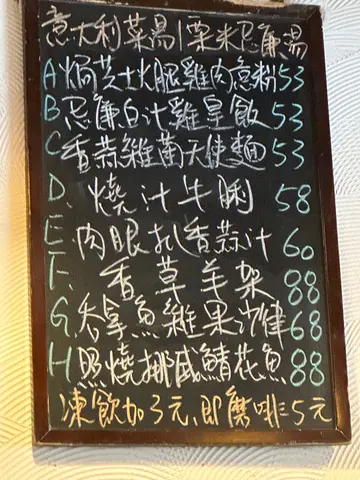 意大利菜湯/粟米忌廉湯
A 焗芝士火腿雞肉意粉 53
B 忌廉白汁雞皇飯 53
C 香蒜雜菌天使麵 53
D. 燒汁牛脷 58
E. 肉眼扒香蒜汁 60
F. 香草羊架 88
G. 吞拿魚雜果沙律 68
H 照燒挪威鯖花魚 88
凍飲加3元,即磨啡5元